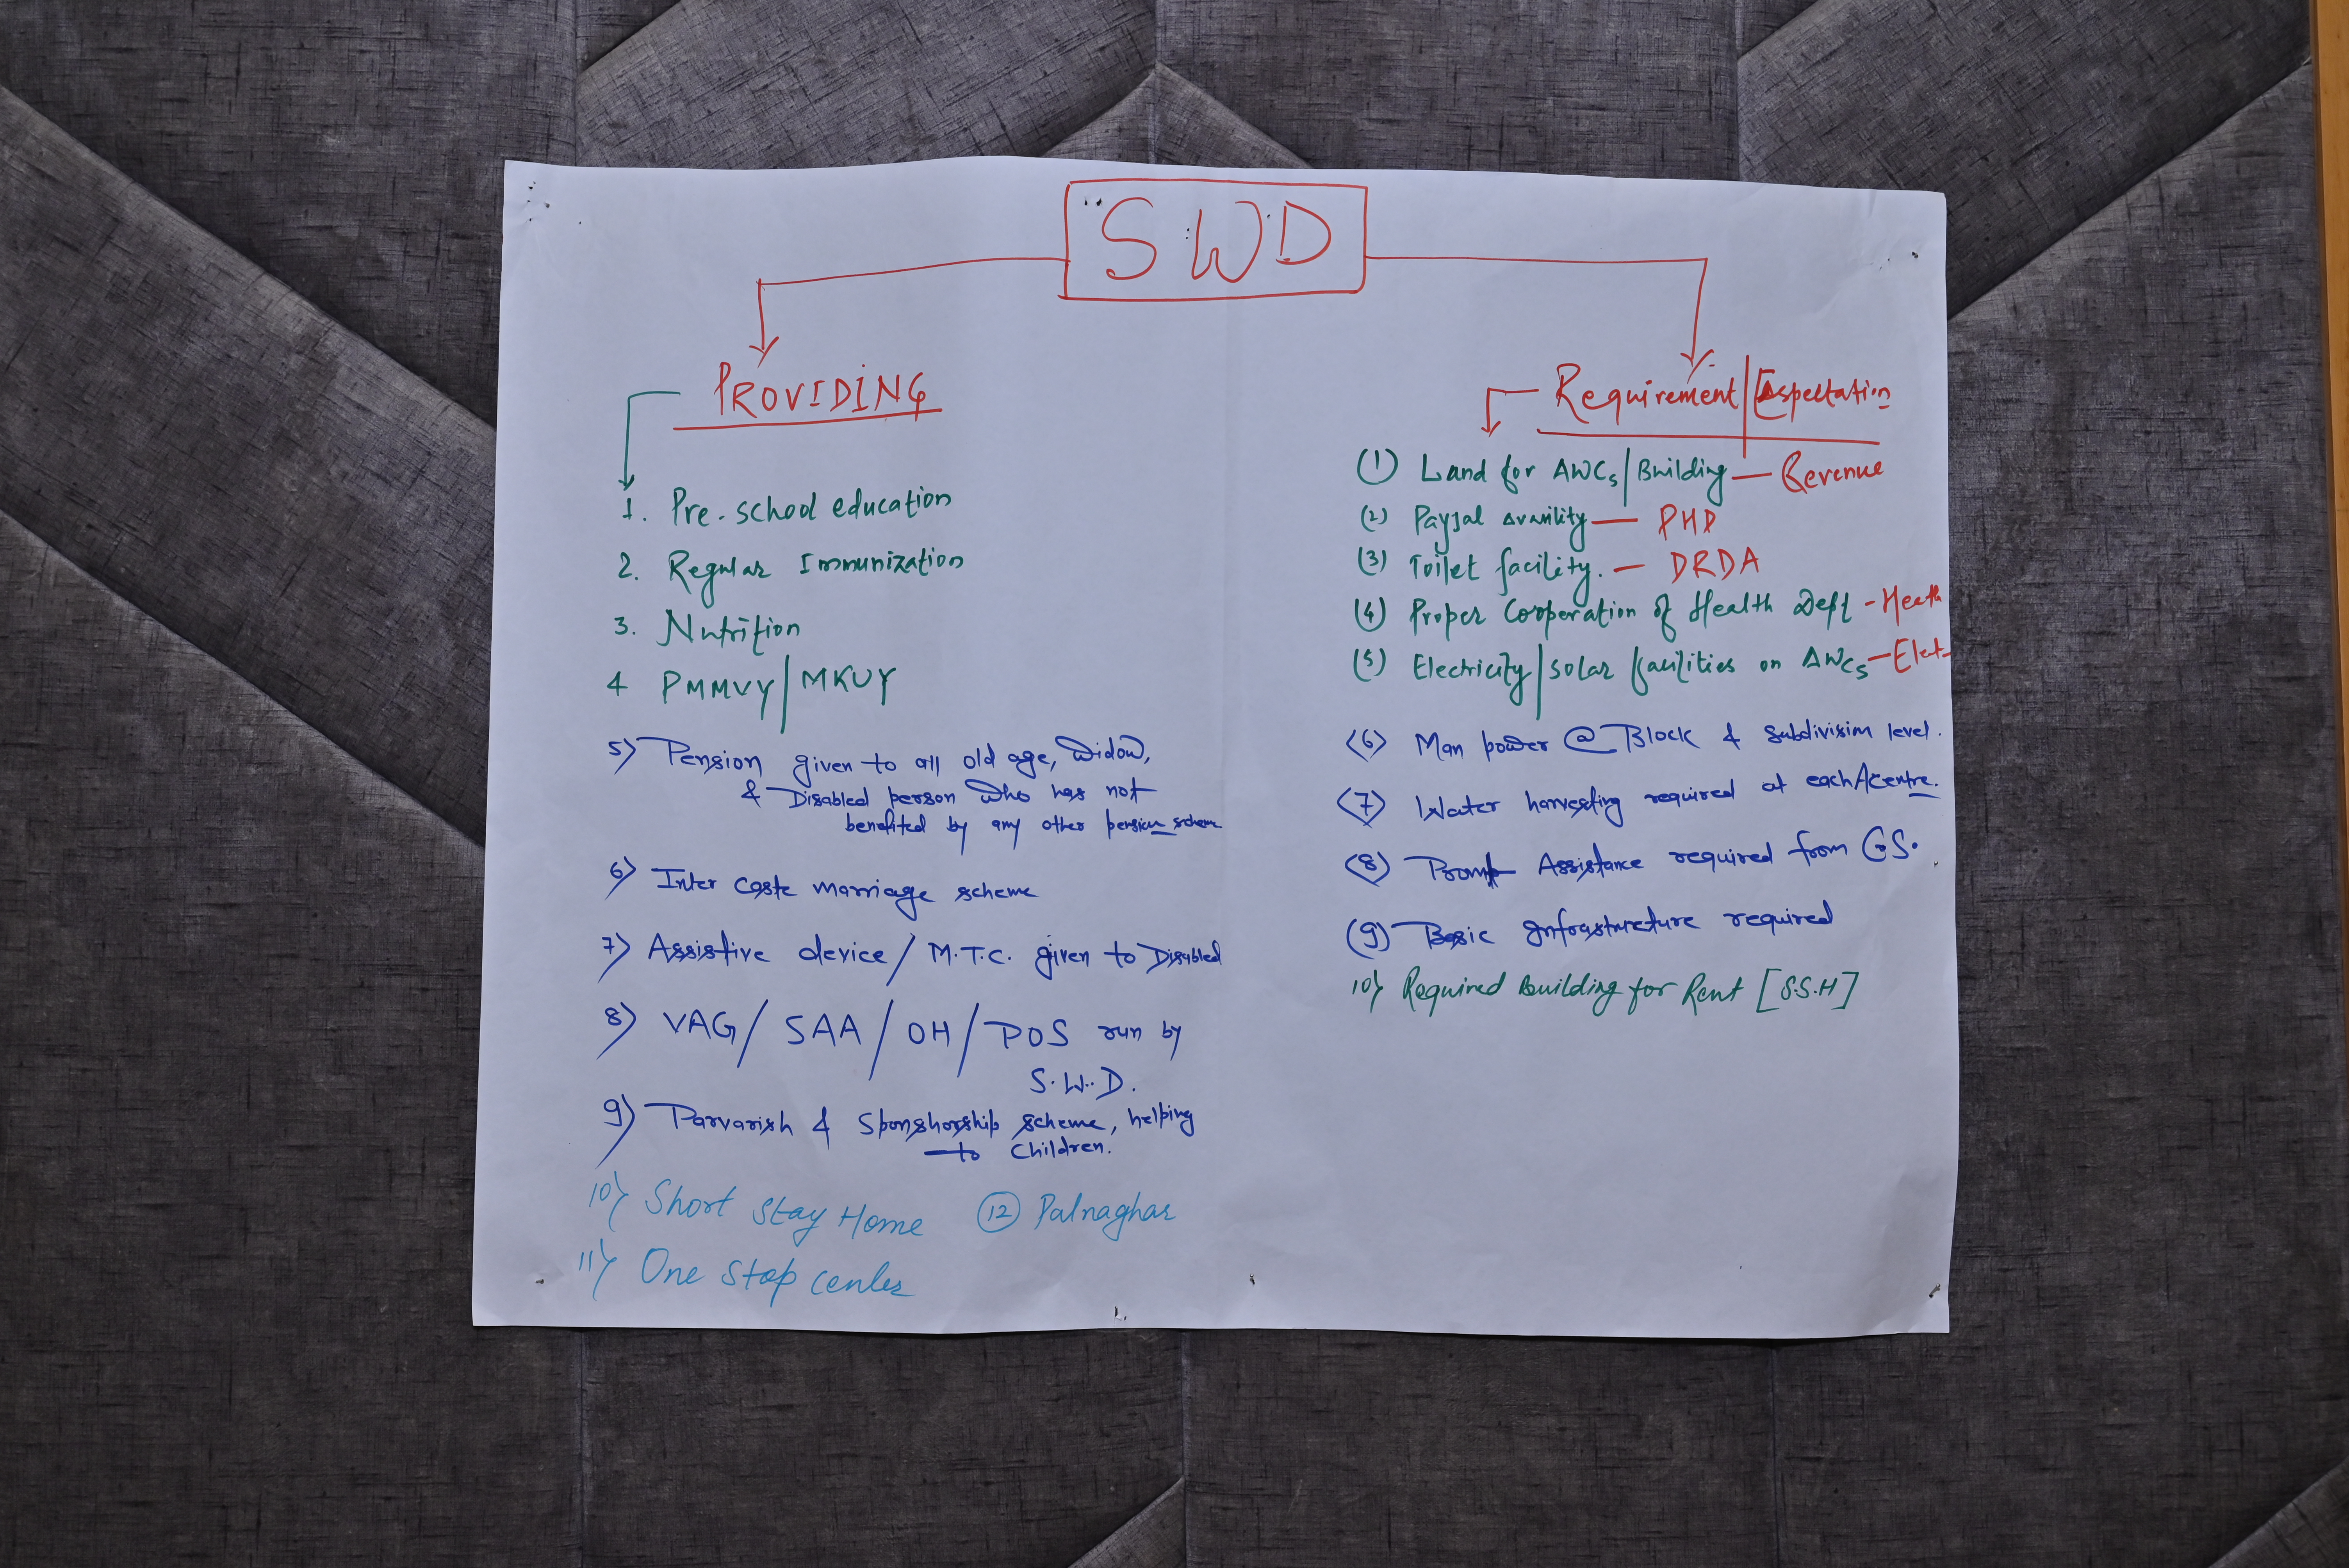 SWD
PROVIDING
1. Pre-school education
2. Regular Immunization
3. Nutrition
4 PMMVY/MKUY
5) Pension given to all old age, Widow,
& Disabled person who has not
benefited by any other pension scheme
6) Inter caste marriage scheme
7) Assistive device / M.T.C. given to Disabled
8) VAG/ SAA / OH / POS run by
S.W.D.
9) Parvarish & Sponshorship scheme, helping
to children.
10) Short Stay Home
12 Palnaghar
11) One Stop center
Requirement/Expectation
(1) Land for AWCs/Building — Revenue
(2) Payjal — PHD
(3) Toilet facility. — DRDA
(4) Proper Cooperation of Health Deptt - Heath
(5) Electricity/solar facilities on AWCs — Elect-
(6) Man power @ Block & subdivision level.
(7) Water harvesting required at each A centre.
(8) Prompt Assistance required from CS.
(9) Basic Infrastructure required
10) Required Building for Rent [S.S.H]